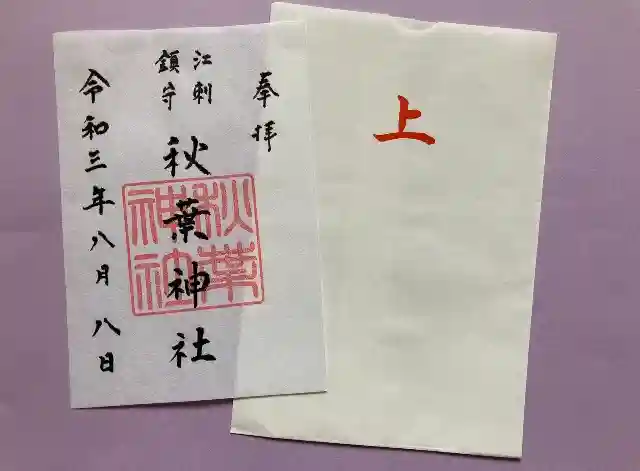 奉拝
江刺
鎮守
秋葉神社
秋葉
神社
令和三年八月八日
上